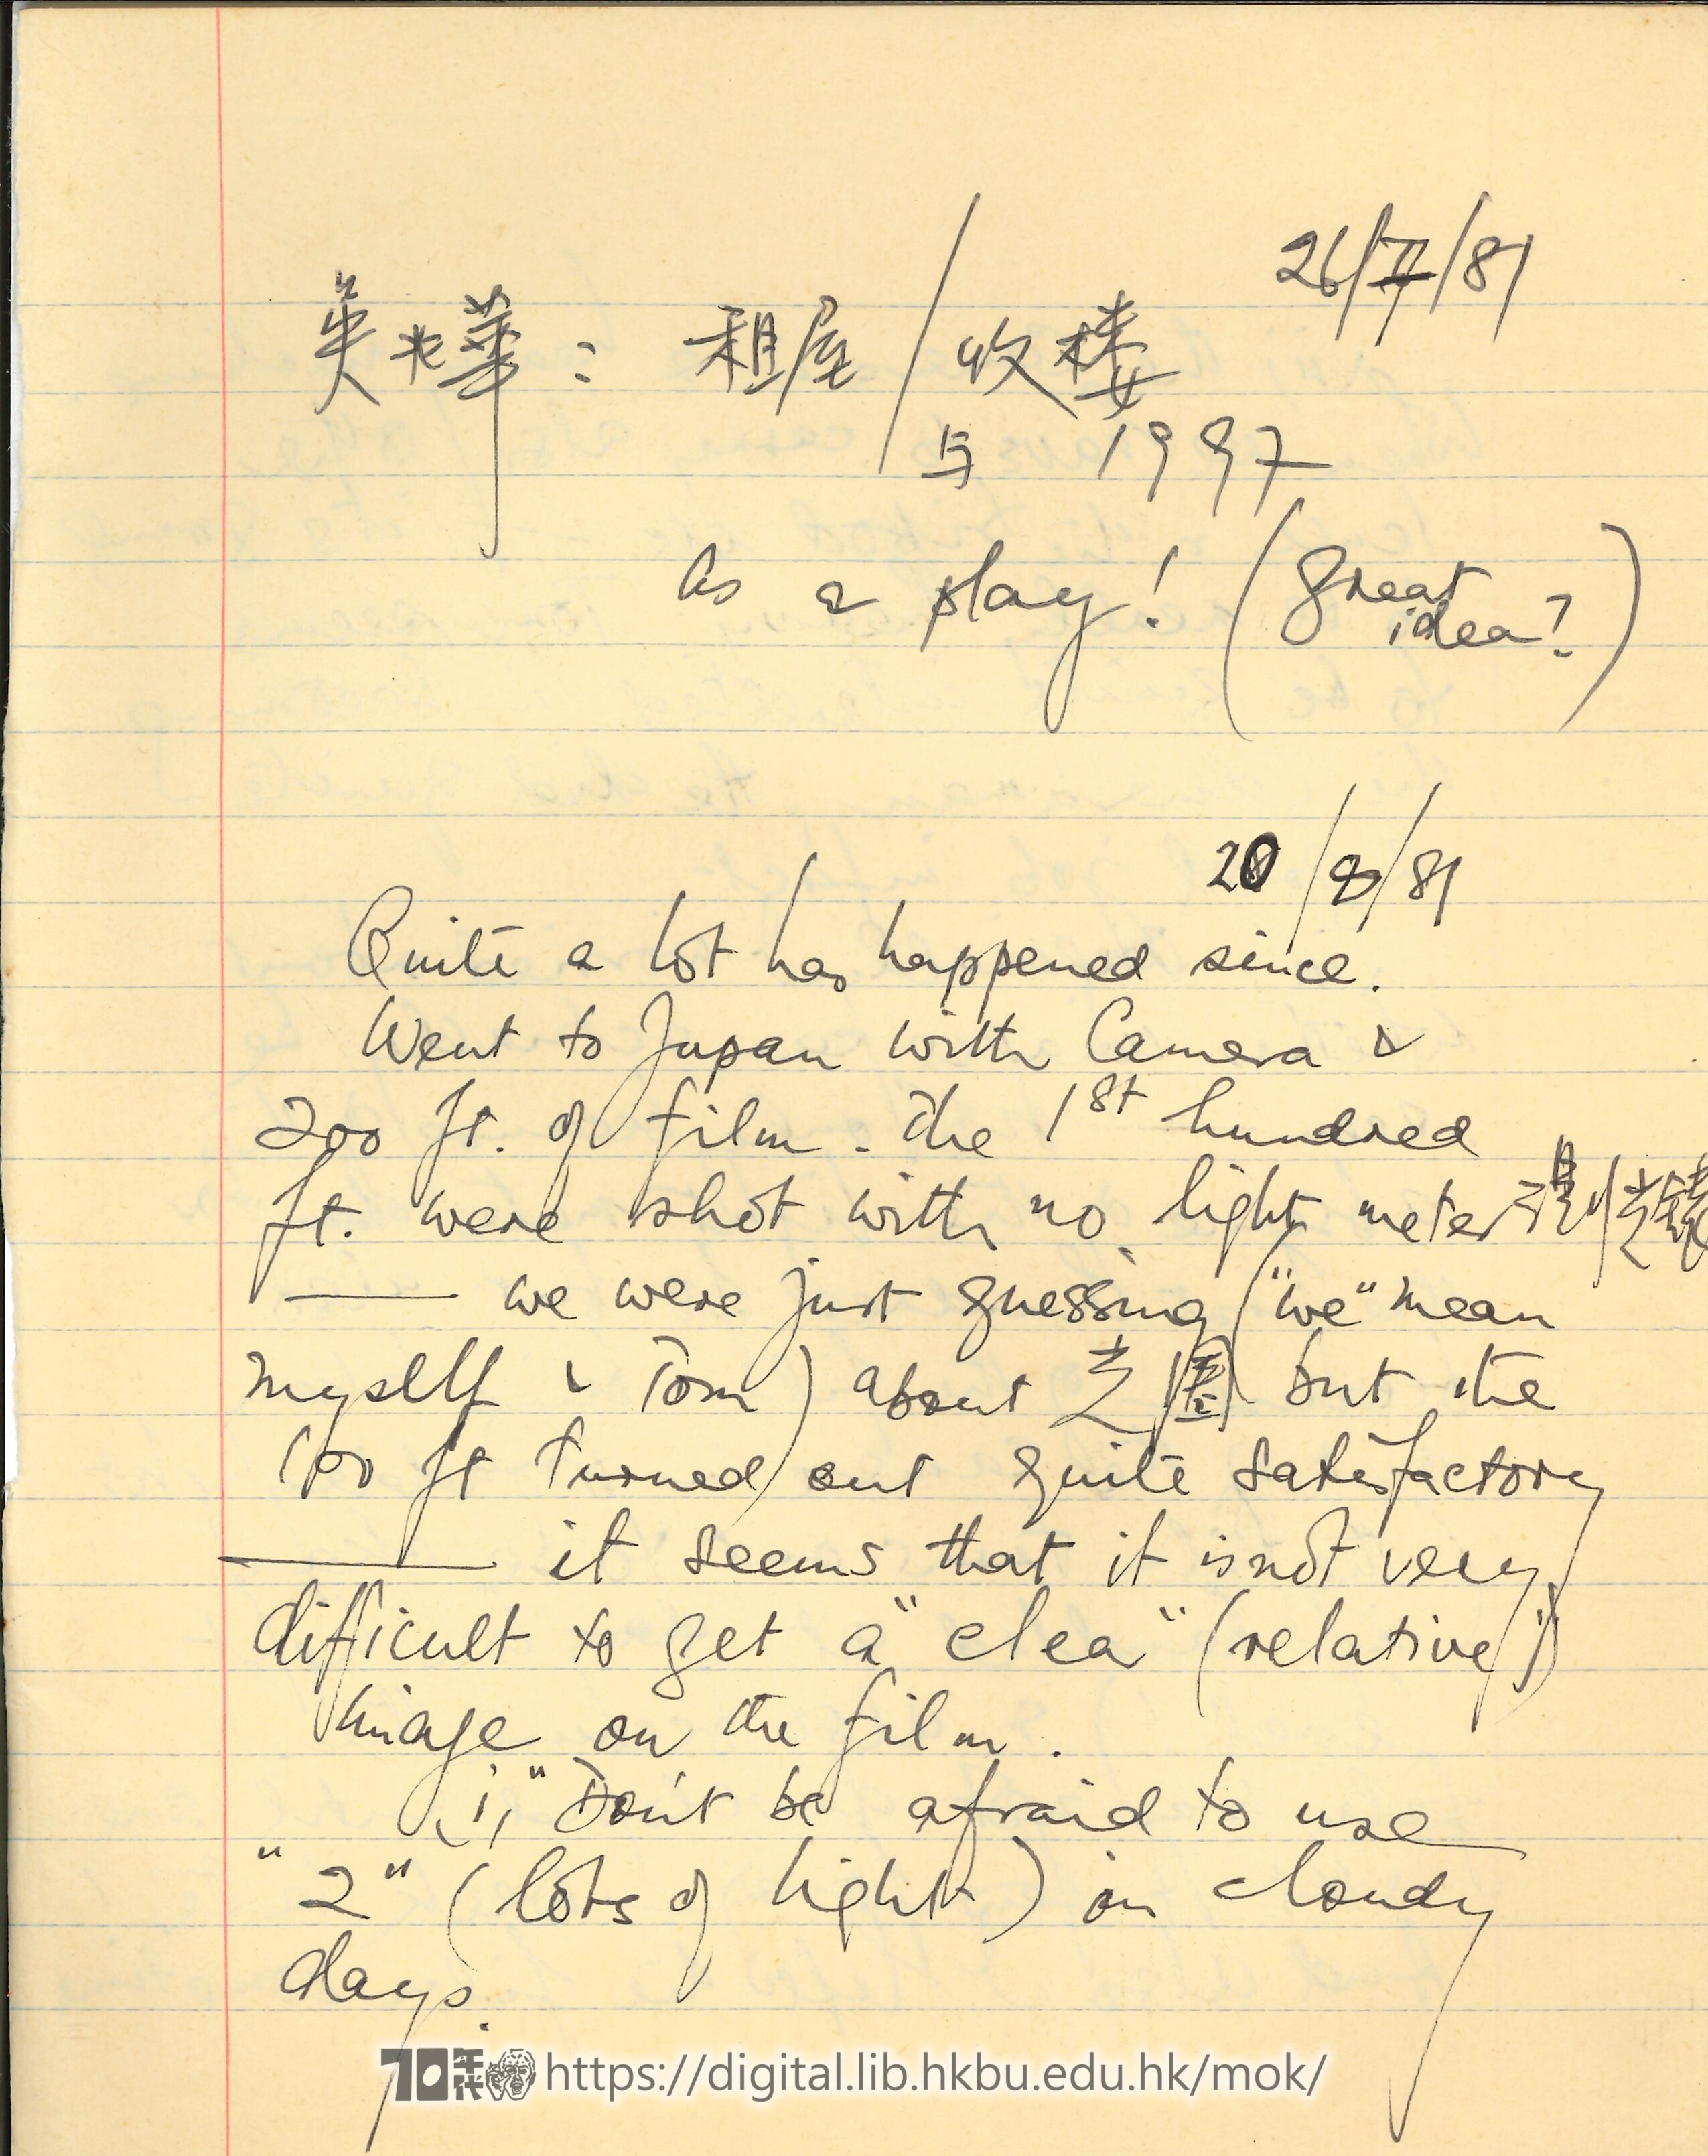 26/7/81
英兆華: 租屋/收楼
与 1997
As a play! (Great
idea?)
20/8/81
Quite a lot has happened since.
Went to Japan with Camera &
200 ft. of film. The 1st hundred
ft. were shot with no light meter 測光錶
— we were just guessing ("we" mean
myself & Tom) about 光圈 but the
100 ft turned out quite satisfactory
— it seems that it is not very
difficult to get a "clea" (relative!)
image on the film.
(i) Don't be afraid to use
"2" (lots of light) in cloudy
days.
70年代 https://digital.lib.hkbu.edu.hk/mok/